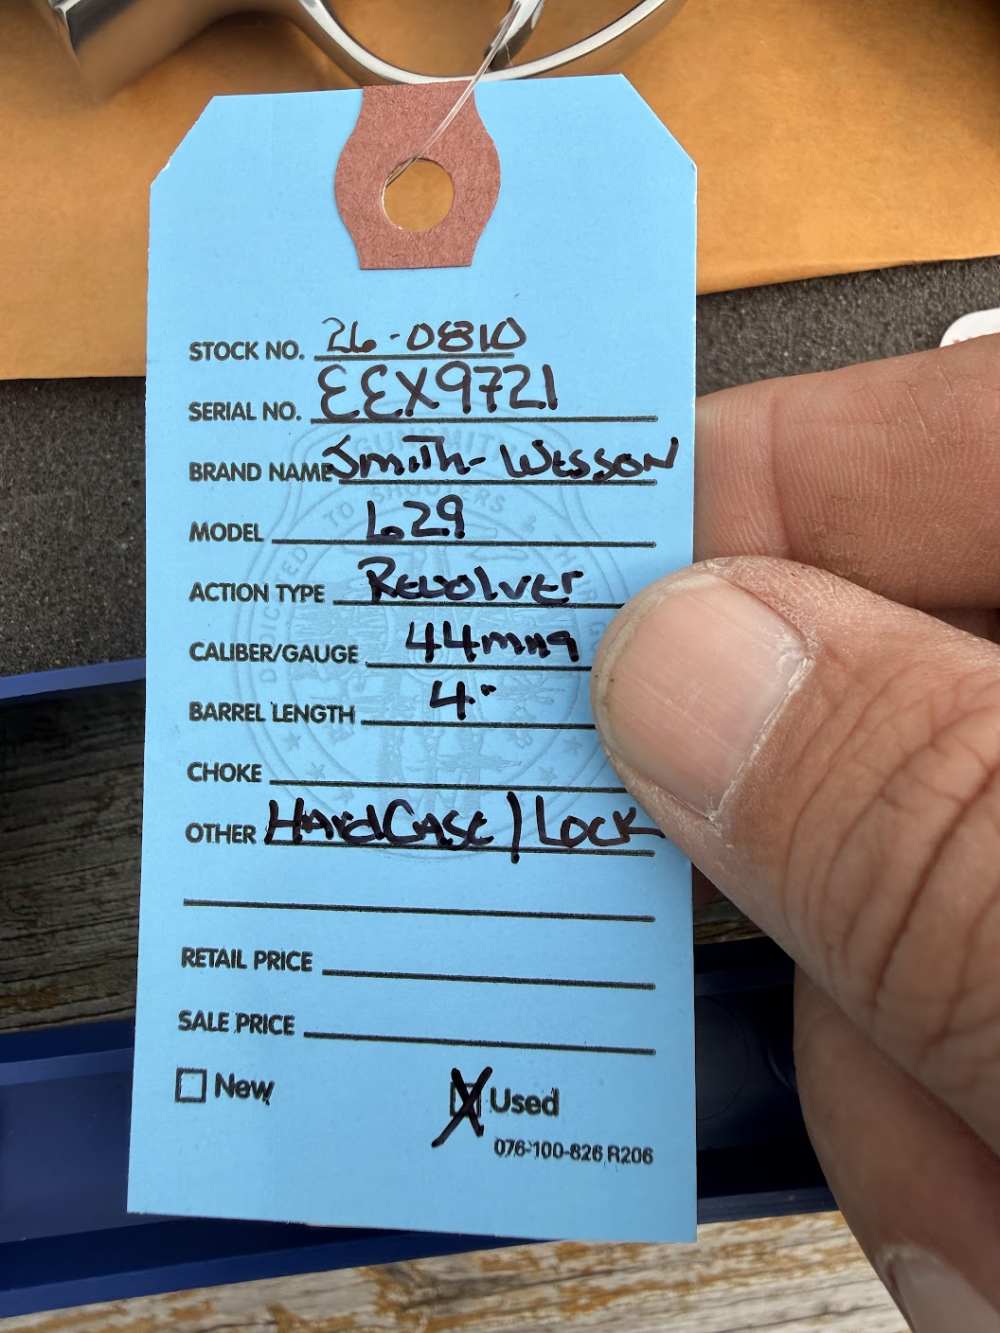 STOCK NO. 26-0810
SERIAL NO. EEX9721
BRAND NAME Smith-Wesson
MODEL 629
ACTION TYPE Revolver
CALIBER/GAUGE 44mag
BARREL LENGTH 4"
CHOKE
OTHER HardCase/Lock
RETAIL PRICE
SALE PRICE
New Used
076-100-826 R206